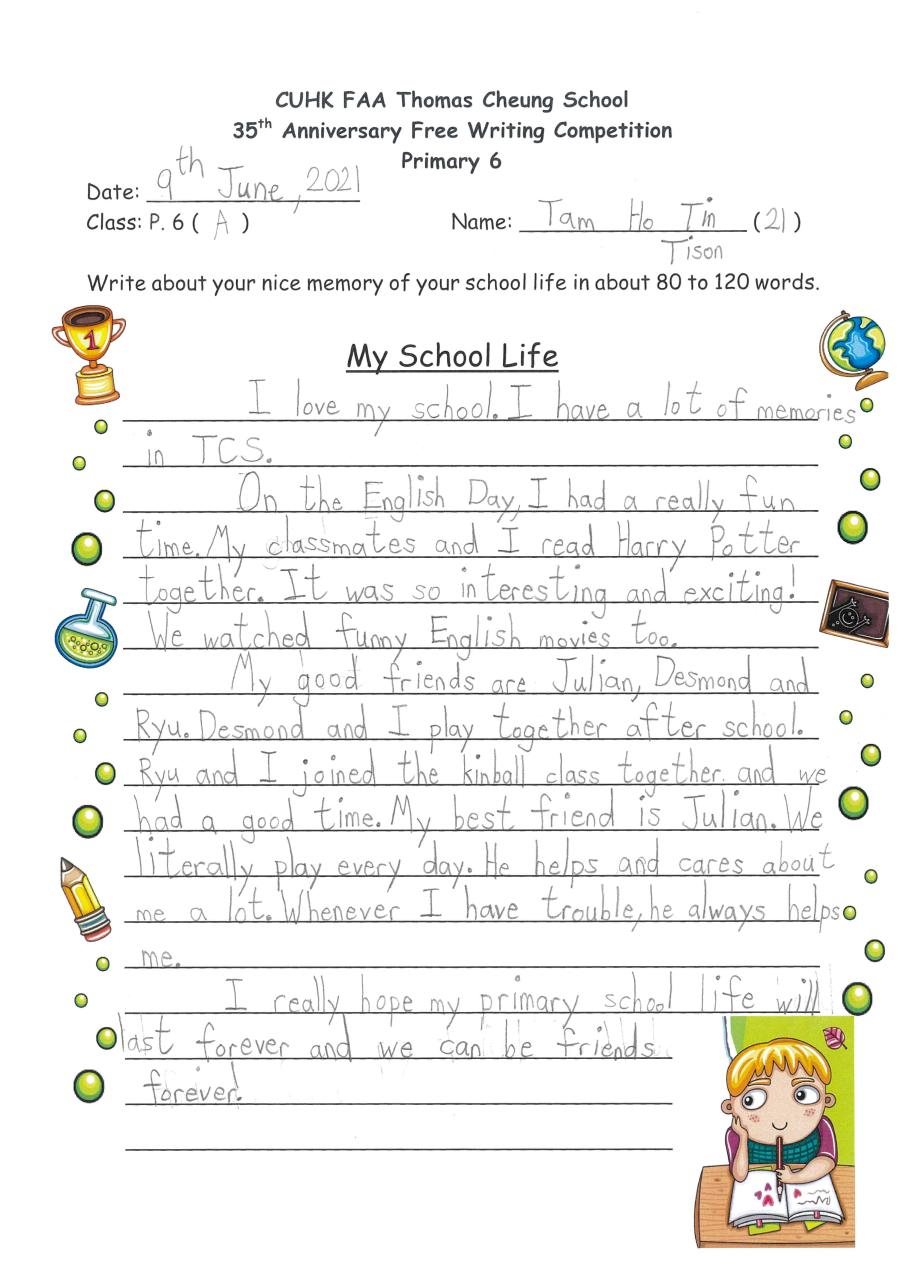 CUHK FAA Thomas Cheung School
35th Anniversary Free Writing Competition
Primary 6
Date: 9th June, 2021
Class: P. 6 ( A ) Name: Tam Ho Tin (21)
Tison
Write about your nice memory of your school life in about 80 to 120 words.
1
My School Life
I love my school. I have a lot of memories
in TCS.
On the English Day, I had a really fun
time. My classmates and I read Harry Potter
together. It was so interesting and exciting!
We watched funny English movies too.
My good friends are Julian, Desmond and
Ryu. Desmond and I play together after school.
Ryu and I joined the kinball class together. and we
had a good time. My best friend is Julian. We
literally play every day. He helps and cares about
me a lot. Whenever I have trouble, he always helps
me.
I really hope my primary school life will
last forever and we can be friends
forever!